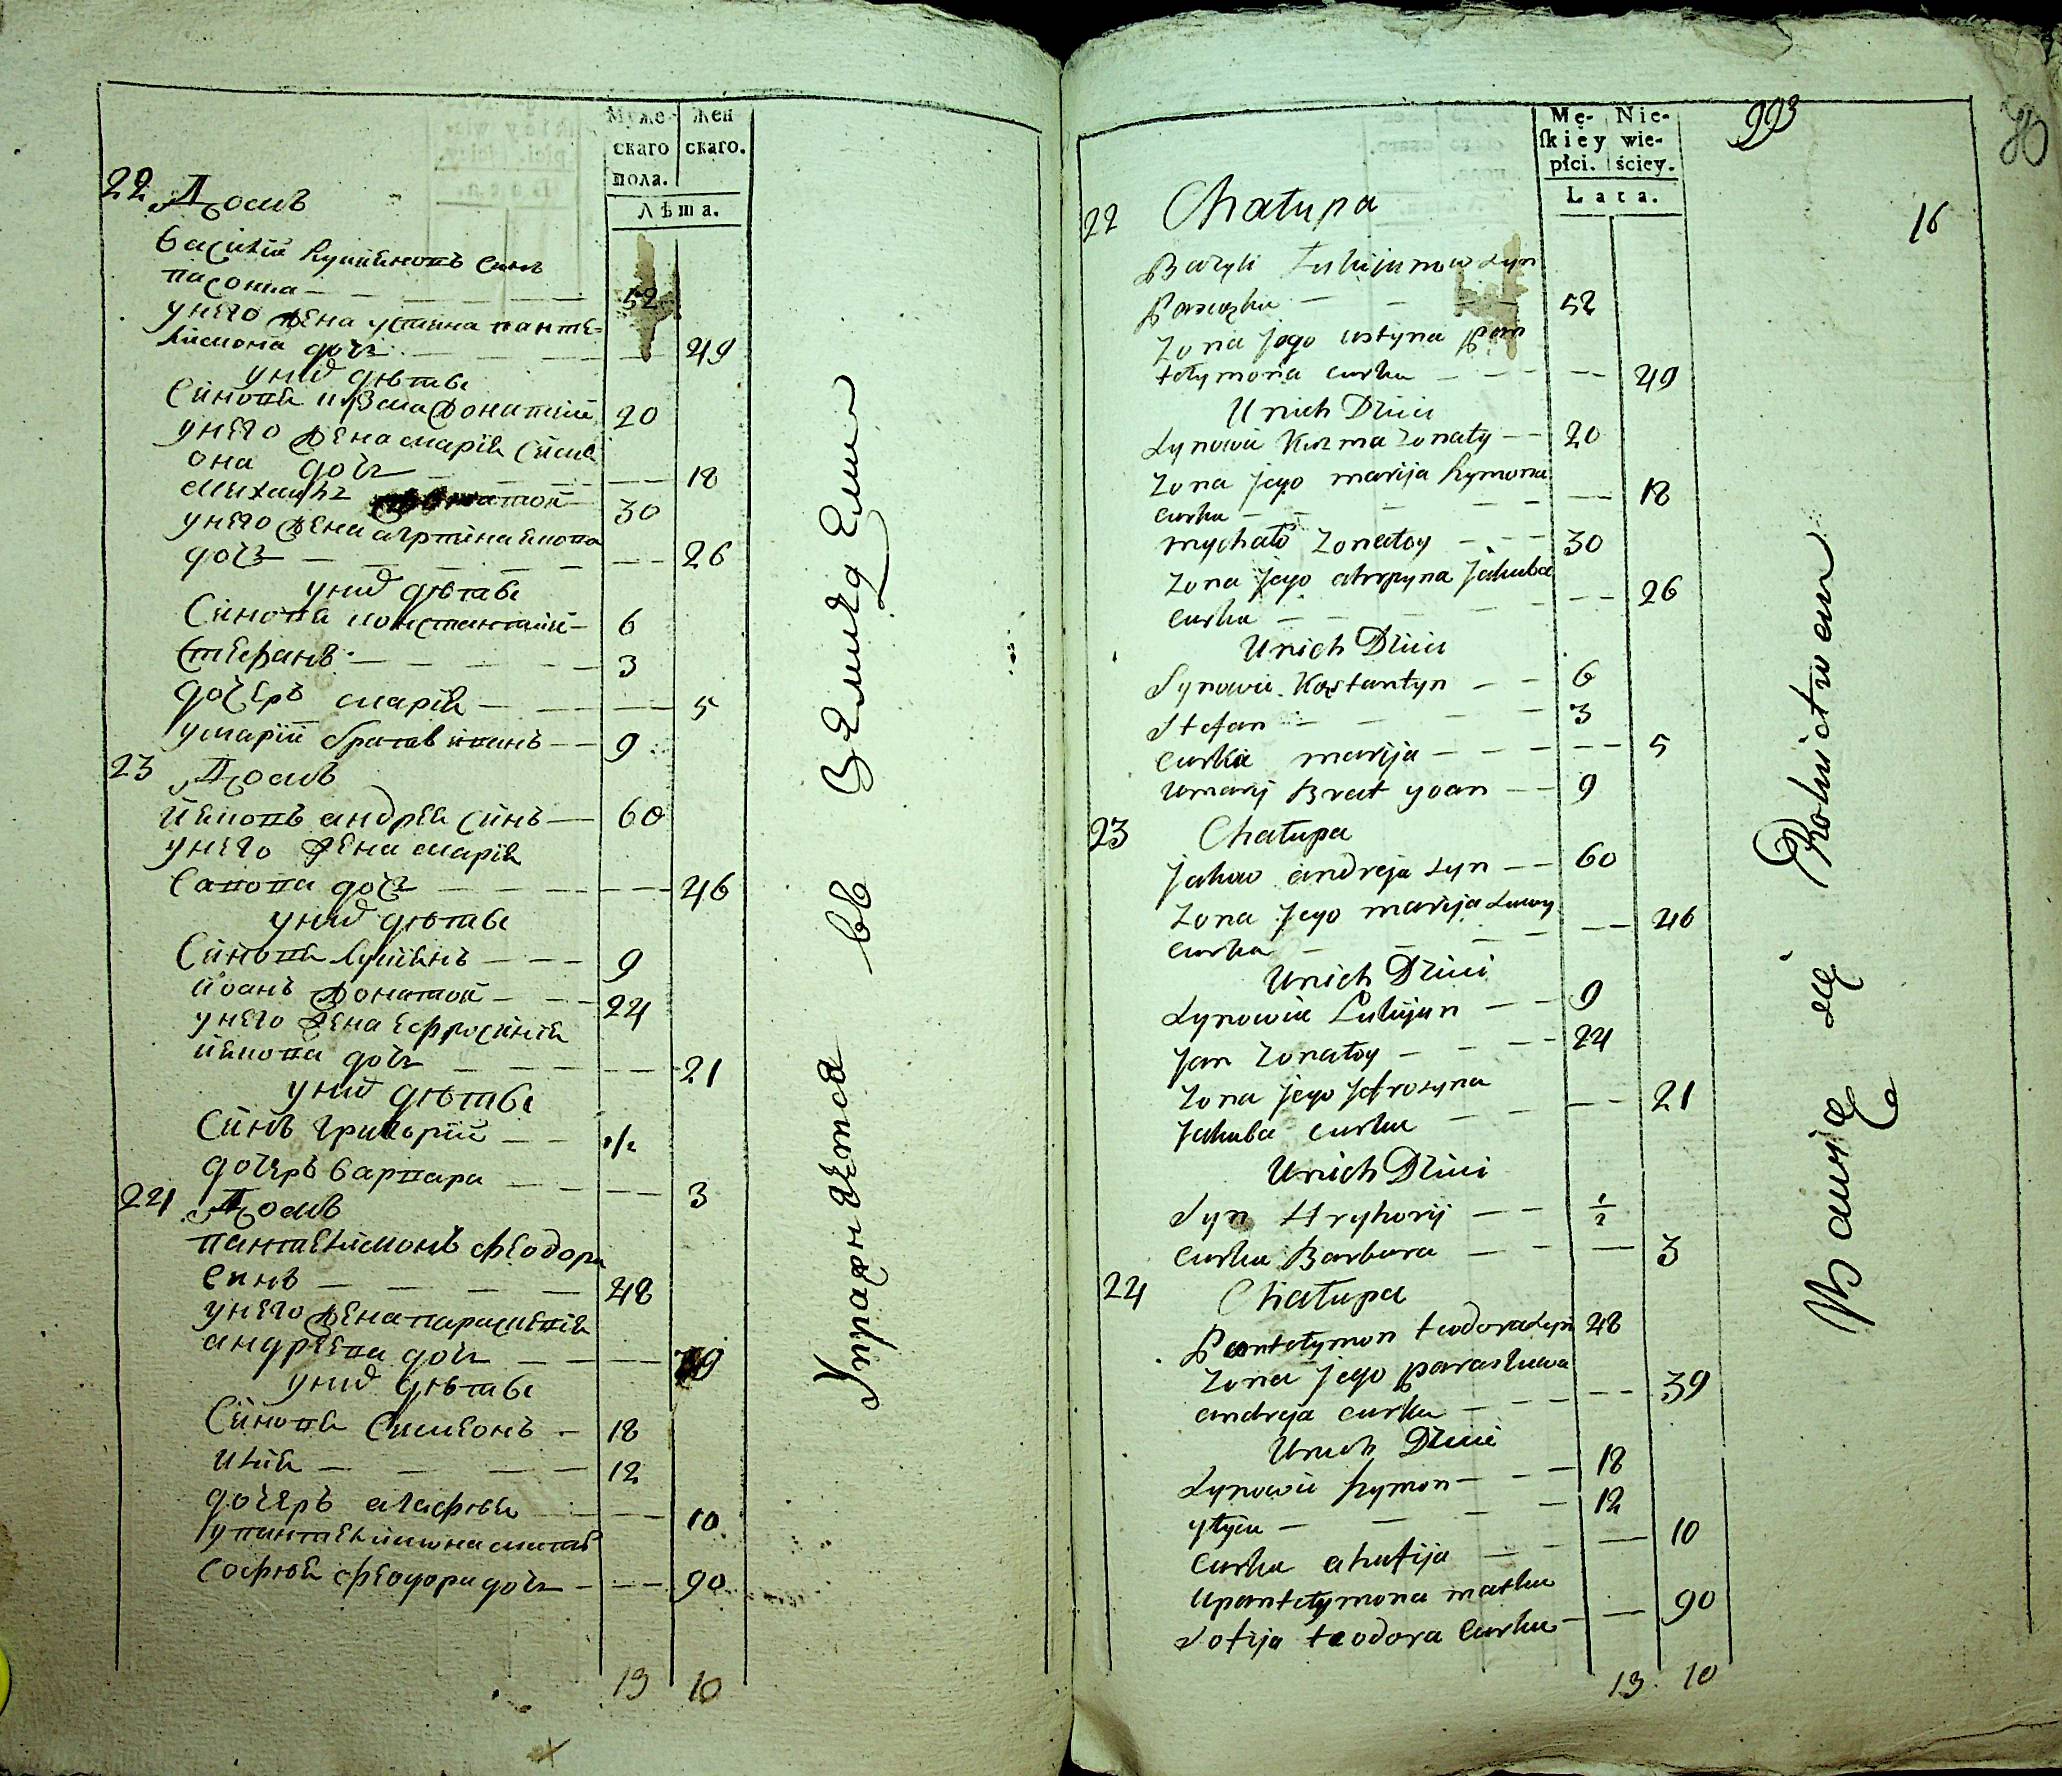 Муже-
скаго
пола.
Жен
скаго.
Лѣта.
22 Домъ
Василій Лукіяновъ синъ
пасошка — 52
унего жена устина панте-
лимона дочь — 49
унихъ дѣтве
Синове кузма жонатий 20
унего жена марія Симе
она дочь — 18
михаилъ жонатой 30
унего жена агрипина якова
дочь — 26
унихъ дѣтве
Синове константий — 6
Стефанъ — 3
дочеръ марія — 5
умаріи братъ иванъ — 9
23 Домъ
Яковъ андрея синъ — 60
унего жена марія
Савова дочь — 46
унихъ дѣтве
Синове Лукіянъ — 9
иоанъ жонатой — 24
унего жена Ефросинія
якова дочь — 21
унихъ дѣтве
Синъ григорий — 1/2
дочеръ варвара — 3
24 Домъ
пантелимонъ феодора
синъ — 48
унего жена параскевія
андреева дочь — 39
унихъ дѣтве
Синове Симеонъ — 18
илія — 12
дочеръ агафія — 10
упантелимона мать
софія феодора дочь — 90
13 10
Упражняется въ Земляделии
993
80
16
Mę-
ſkiéy
płci.
Nie-
wie-
ściey.
Lata.
22 Chałupa
Bazyli Łukijanow syn
Pasiczka — 52
Zona Jego ustyna pan
tełymona curka — 49
Unich Dzieci
Synowie Kuzma zonaty — 20
Zona Jego marija Symona
curka — 18
mychało Zonatoy — 30
Zona Jego ahrypyna Jakuba
curka — 26
Unich Dzieci
Synowie Kostantyn — 6
Stefan — 3
curka marija — 5
Umarij Brat yoan — 9
23 Chałupa
Jakow andreja syn — 60
Zona Jego marija Sawy
curka — 46
Unich Dzieci
Synowie Lukijan — 9
Jan Zonatoy — 24
Zona Jego Jefrosyna
Jakuba curka — 21
Unich Dzieci
Syn Hryhorij — 1/2
curka Barbara — 3
24 Chałupa
Pantełymon teodora syn 48
Zona Jego paraskewa
andreja curka — 39
Unich Dzieci
Synowie Symon — 18
yłyja — 12
curka ahafija — 10
Upantełymona matka
Sofija teodora curka — 90
13 10
Bawią się Rolnictwem